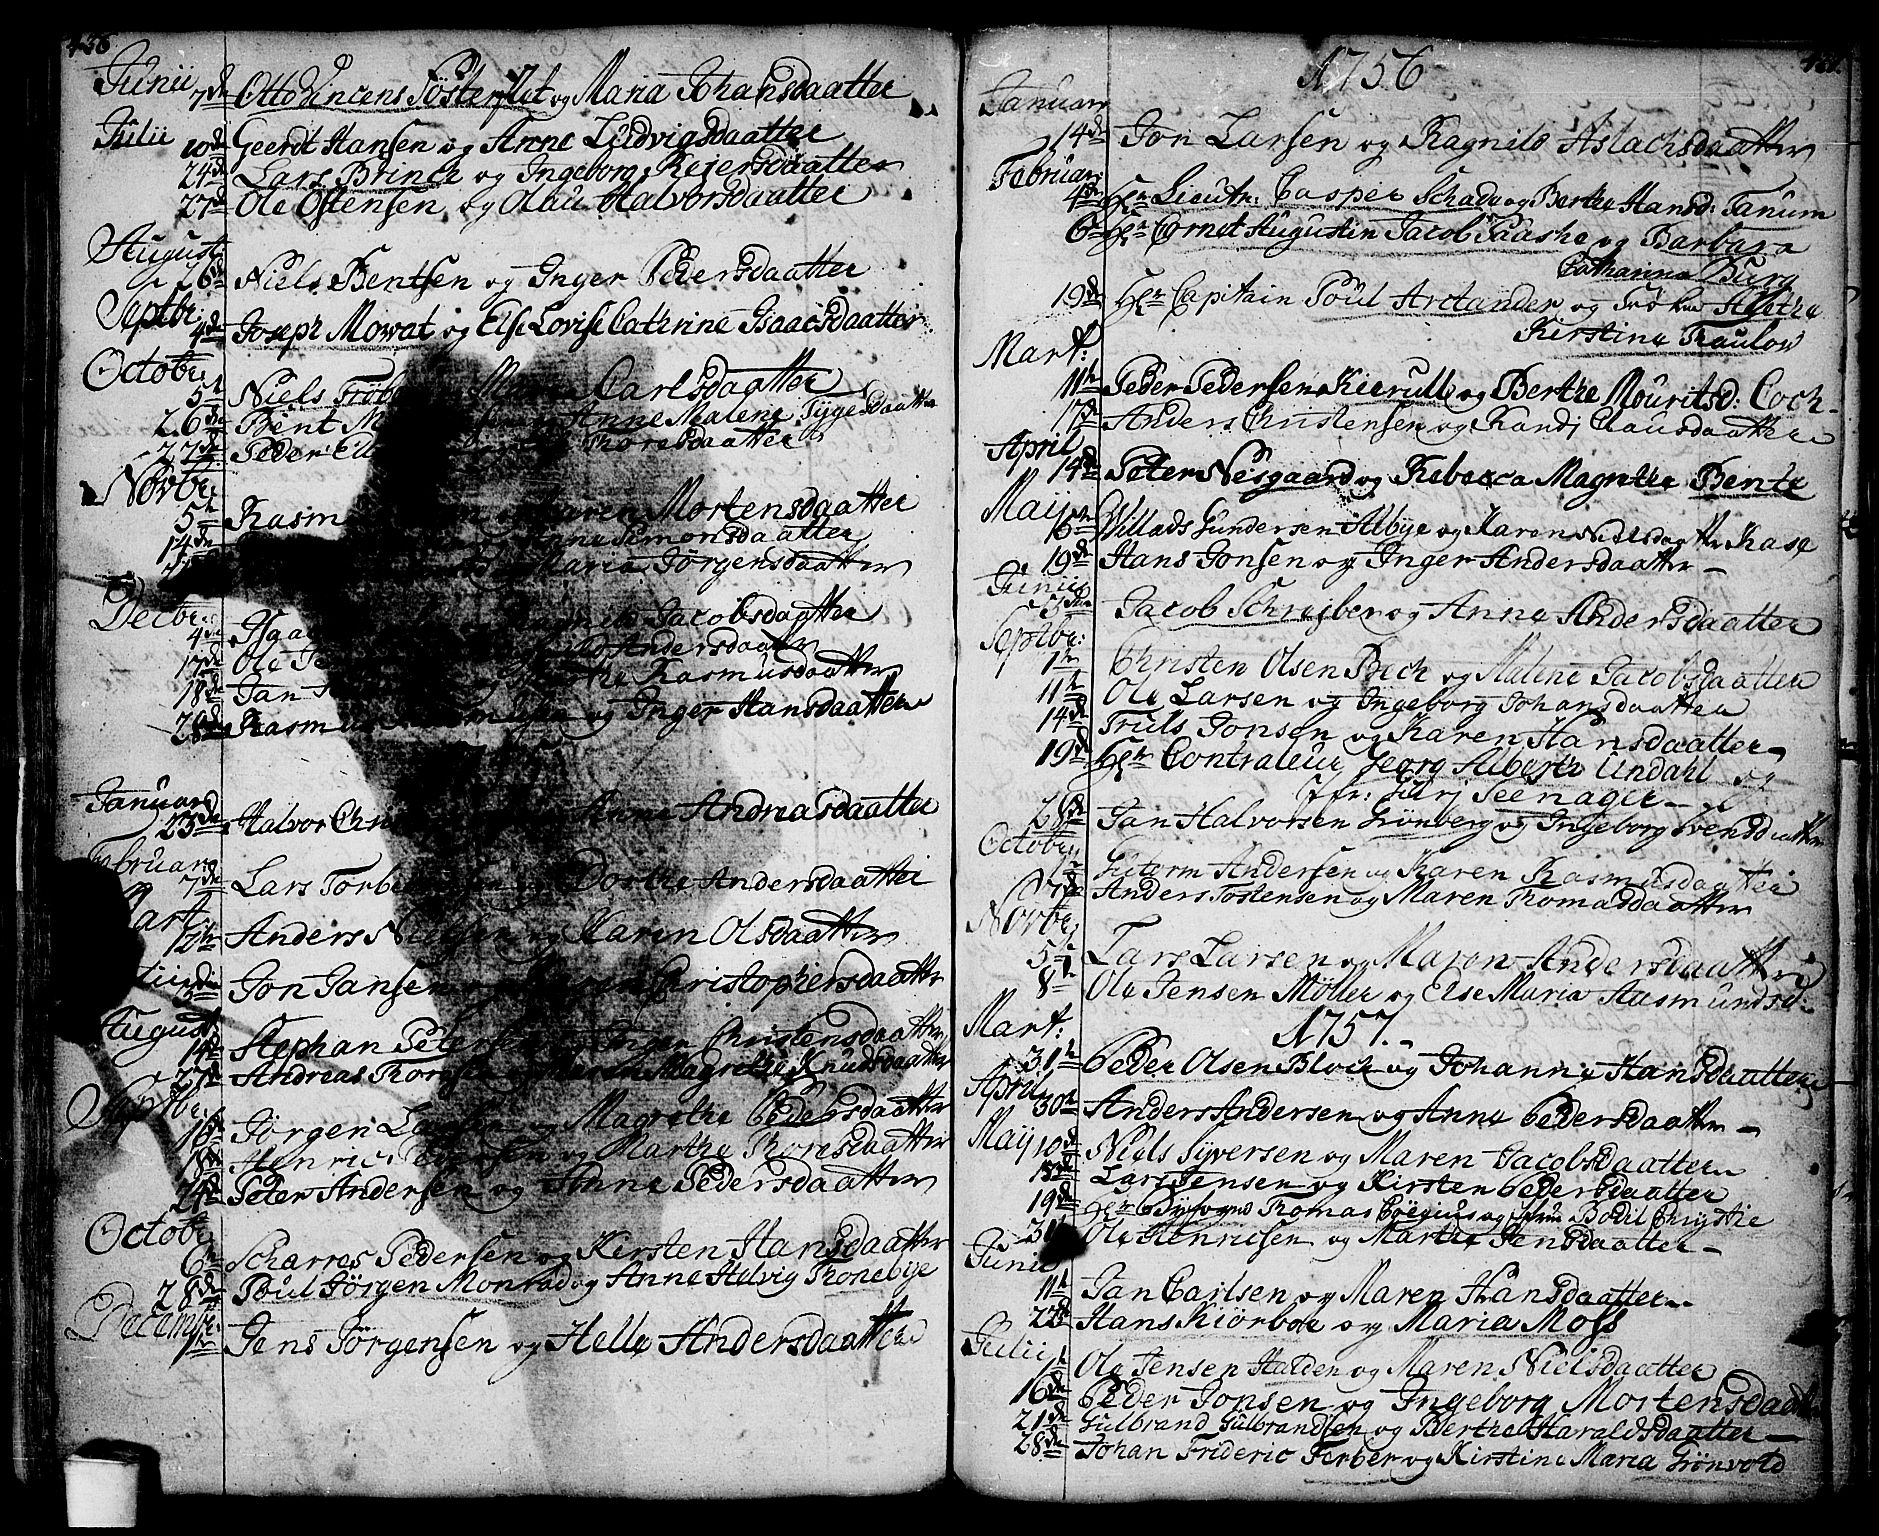 436
Junii
7de Otto Vincens Tøsterflet og Maria Johansdaatter
Julii
10de Geerdt Hansen og Anne Ludvigsdaatter
24de Lars Brinck og Ingeborg Reiersdaatter
27de Ole Ostensen og Olau Halvorsdaatter
August:
26 Niels Bentsen og Inger Pedersdaatter
Septbr:
4de Joseph Mowat og Else Lovise Cathrine Isaacsdaatter
Octobr:
5te Niels Carlsdaatter
26de Bent Anne Malene Tygesdaatter
27de Peder Thoresdaatter
Novbr:
5te Rasm Karen Mortensdaatter
14de Anne Simonsdaatter
Maria Jørgensdaatter
Decbr:
4de Isaac Jacobsdaatter
17de Ole Andersdaatter
18de Jan Rasmusdaatter
28de Rasmus Rasmusen og Inger Hansdaatter
Januar:
23de Halvor Chri Anne Andreasdaatter
Februar:
7de Lars Torbe og Dorthe Andersdaatter
Mart:
12te Anders Nielsen og Karen Olsdaatter
5te Jon Jansen og Maren Christophersdaatter
August:
14de Stephan Petersen og Inger Christensdaatter
27de Andreas Thoresen og Karen Magrethe Knudsdaatter
Septbr:
16de Jørgen Larsen og Magrethe Pedersdaatter
18de Henric og Marthe Thoresdaatter
24de Peter Andersen og Anne Pedersdaatter
Octobr:
6te Scharres Pedersen og Kirsten Hansdaatter
28de Poul Jørgen Monrad og Anne Helvig Thonebye
Decembr:
1te Jens Jørgensen og Helle Andersdaatter
1756
Januar:
14de Jon Larsen og Ragnild Aslachsdaatter
Februar:
4de Hr Lieutn: Casper Schade og Berthe Hansd: Tanum
6te Hr Cornet Augustin Jacob Paaske og Barbara
Catharina Burg
19de Hr Capitain Poul Arctander og Alethe
Kirstine Traulov
Mart:
11te Peder Pedersen Kierulf og Berthe Mouritsd: Coch
17de Anders Christensen og Randj Clausdaatter
April
14de Peter Nesgaard og Rebecca Magrethe Bente
Maij
16te Villads Gundersen Albye og Karen Nielsdaatter Rase
19de Hans Jonsen og Inger Andersdaatter
Junii
5te Jacob Schrejber og Anne Andersdaatter
Septbr:
1te Christen Olsen Bech og Malene Jacobsdaatter
11te Ole Larsen og Ingeborg Johansdaatter
14de Truls Jonsen og Karen Hansdaatter
19de Hr Contraleur Georg Alberth Undahl og
Jfr: Seenager
28de Jan Halvorsen Grønberg og Ingeborg Svendsdaatter
Octobr:
Gutorm Andersen og Karen Rasmusdaatter
17de Anders Tostensen og Maren Thomasdaatter
Novbr:
5te Lars Larsen og Maren Andersdaatter
8te Ole Jensen Møller og Else Maria Aasmundsd:
1757.
Mart:
31te Peder Olsen Bloch og Johanne Hansdaatter
April
30te Anders Andersen og Anne Pedersdaatter
Maij
10de Niels Syversen og Maren Jacobsdaatter
13de Lars Jensen og Kirsten Pedersdaatter
19de Hr Byfoged Thomas og Frue Bodil Chrystie
31te Ole Henricsen og Marthe Jensdaatter
Junii
11te Jan Carlsen og Maren Hansdaatter
22de Hans Kiørboe og Maria Moss
Julii
1te Ole Jensen Halden og Maren Nielsdaatter
16de Peder Jonsen og Ingeborg Mortensdaatter
21de Gulbrand Gulbrandsen og Berthe Haraldsdaatter
28de Johan Frideric Ferber og Kirstine Maria Grønvold